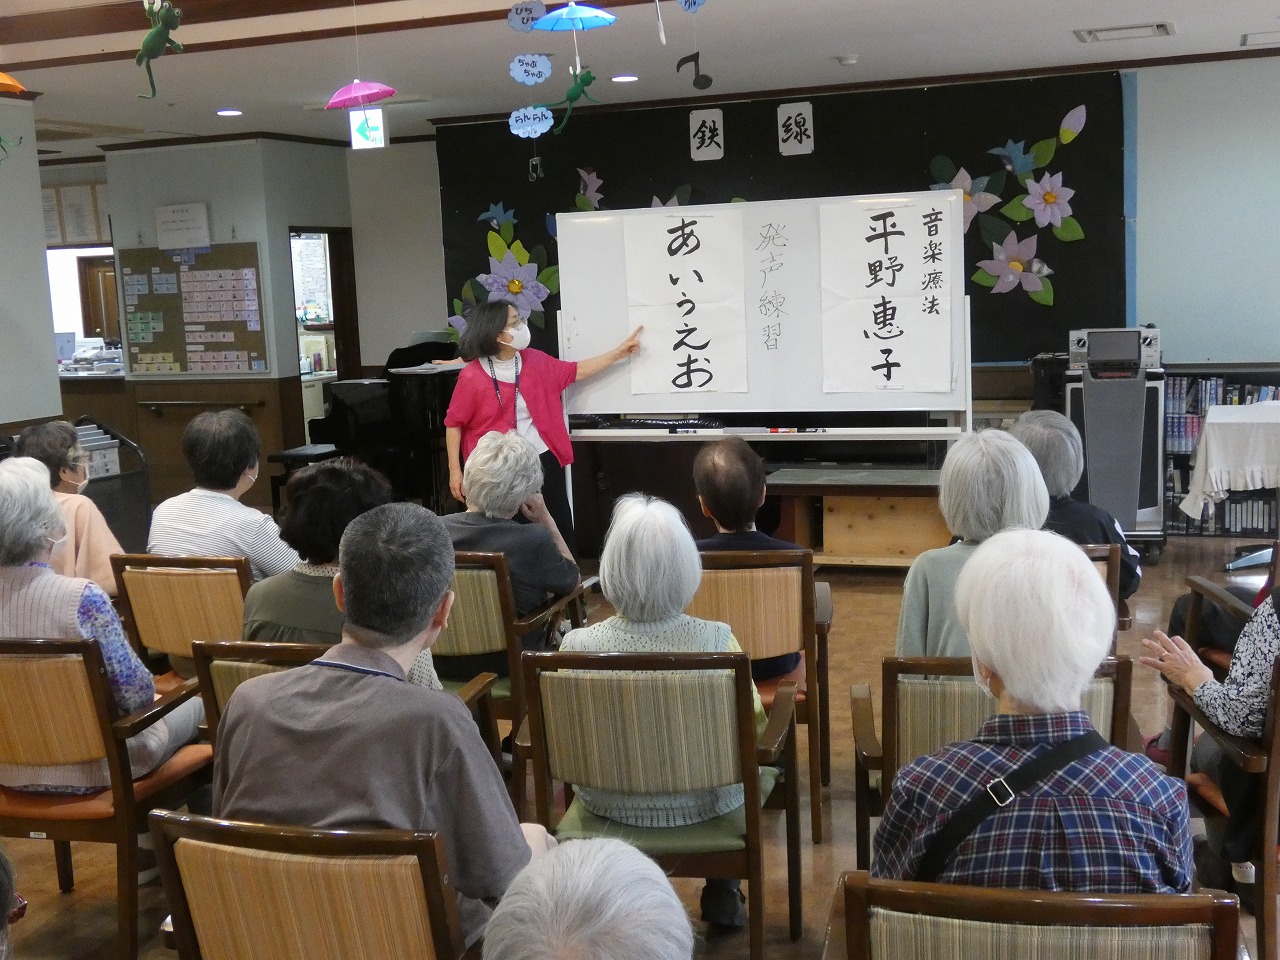 ぴちぴち
ちゃぷ
ちゃぷ
らんらん
鉄線
音楽療法
平野惠子
発声練習
あいうえお